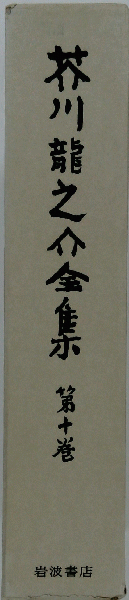 芥川龍之介全集
第十巻
岩波書店